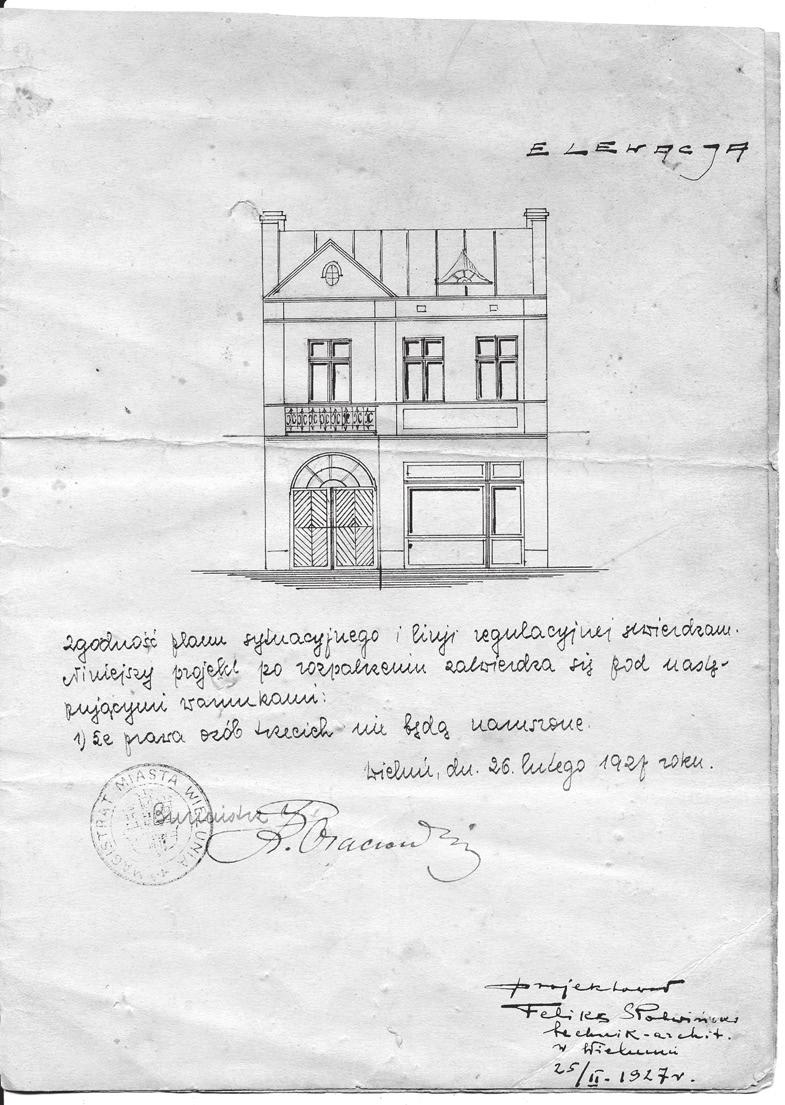 ELEWACJA
Zgodność planu sytuacyjnego i linji regulacyjnej stwierdzam.
Niniejszy projekt po rozpatrzeniu zatwierdza się pod nastę-
pującymi warunkami:
1) że prawa osób trzecich nie będą naruszone.
Wieluń, dn. 26. lutego 1927 roku.
MAGISTRAT MIASTA WIELUNIA
Burmistrz
projektował
Feliks
technik-archit.
w Wieluniu
25/II-1927 r.